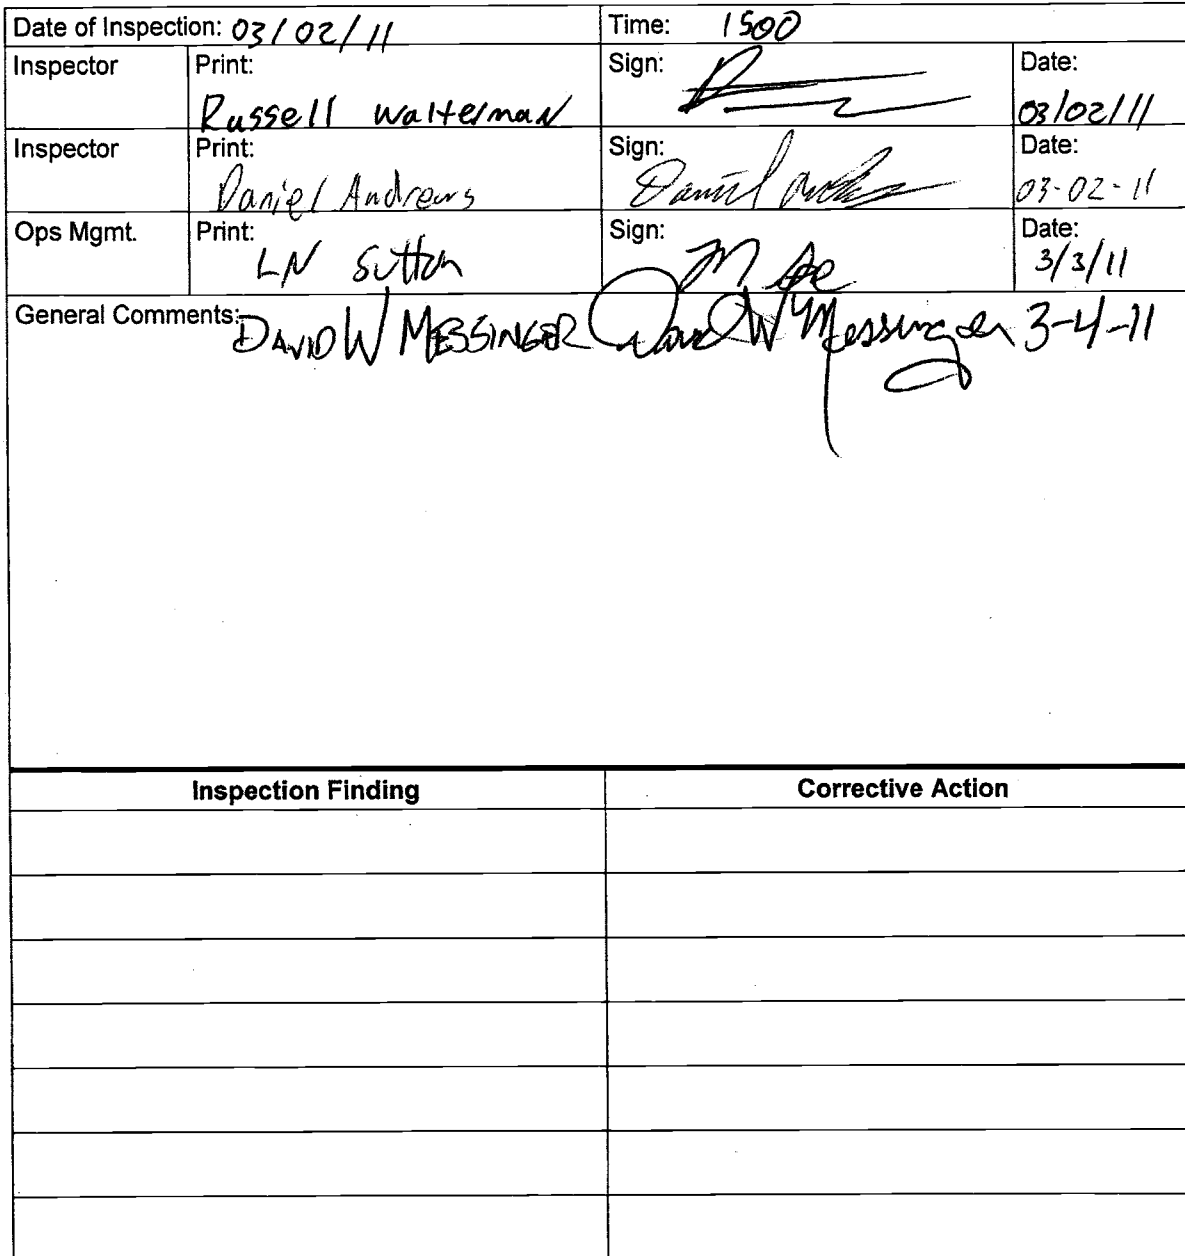 Date of Inspection: 03/02/11 Time: 1500
Inspector Print: Sign: Date:
Russell Walterman 03/02/11
Inspector Print: Sign: Date:
Daniel Andrews Daniel 03-02-11
Ops Mgmt. Print: Sign: Date:
LN Sutton 3/3/11
General Comments: DAVID W MESSINGER David W Messinger 3-4-11
Inspection Finding Corrective Action